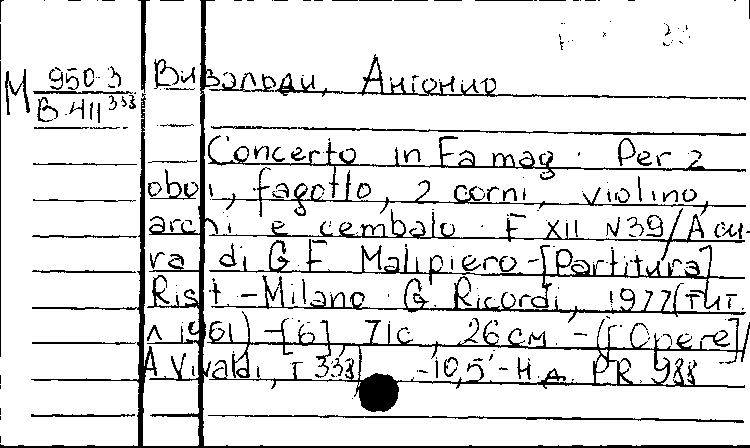 М 950-3
В-411 333
Вивальди, Антонио
Concerto in Fa mag. Per 2
oboi, fagotto, 2 corni, violino,
archi e cembalo. F XII N39/A cu-
ra di G. F. Malipiero.-[Partitura]
Rist.-Milano: G. Ricordi, 1977(тит.
л. 1961).-[6], 71с., 26 см.-([Opere]/
A. Vivaldi, T. 333). -10,5.-Н.д. P.R. 988